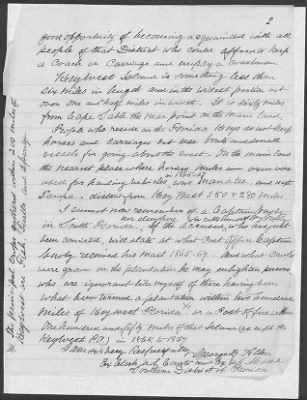 2
good opportunity of becoming acquainted with all
people of that District who could afford to keep
a Coach or Carriage and employ a Coachman.
Key West Island is something less than
six miles in length and in the widest portion not
over one and half miles in width. It is sixty miles
from Cape Sable the near point on the main land.
People who reside on the Florida Keys do not keep
horses and carriages but use boats and small
vessels for going about the coast. On the main land
the nearest place where horses mules and oxen were
used for hauling vehicles in 1865-67 was Manatee, and next
Tampa, distant from Key West 250 & 280 miles.
I cannot now remember of a Captain
nor
in South Florida. If the accused, who has just
been convicted, will state at what Post Office Captain
received his Mail 1865-67. And what crops
were grown on the plantation he may enlighten persons
who are ignorant like myself of there having been
what he termed a plantation within two hundred
miles of Key West Florida or a Post Office within
One hundred and fifty miles of that Island (except the
Key West P.O.) in 1865 to 1867
I am very Respectfully
George D. Allen
Ex Clerk U.S. Courts and Ex U.S. Marshal
Southern District of Florida
The principal crops gathered within 200 miles of
Key West are Fish, Turtle and Sponge